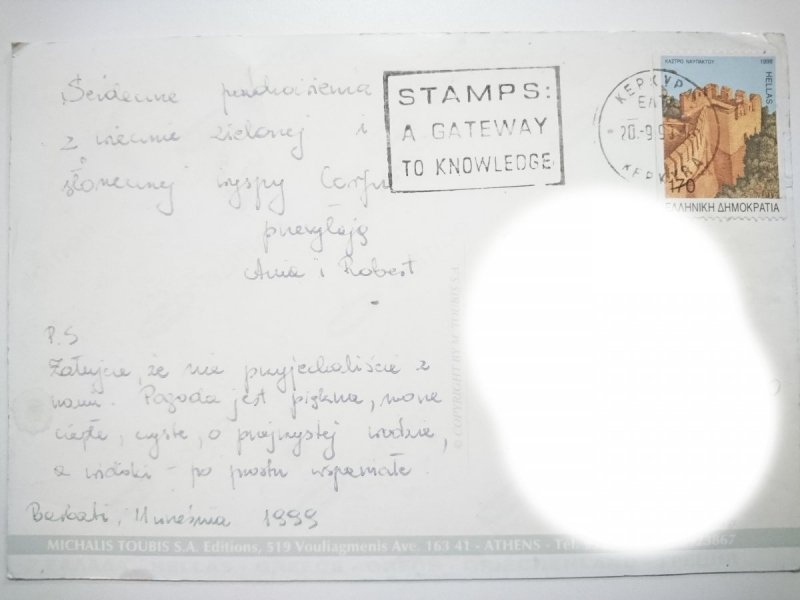 Serdeczne pozdrowienia
z wiecznie zielonej i
słonecznej wyspy Corfu
przesyłają
Ania i Robert
P.S
Żałujcie, że nie przyjechaliście z
nami. Pogoda jest piękna, morze
ciepłe, czyste, o przejrzystej wodzie,
a widoki - po prostu wspaniałe.
Barbati, 11 września 1999
STAMPS:
A GATEWAY
TO KNOWLEDGE
ΚΕΡΚΥΡ
20.-9.9
ΚΕΡΚΥΡΑ
ΚΑΣΤΡΟ ΝΑΥΠΑΚΤΟΥ 1998
HELLAS
170
ΕΛΛΗΝΙΚΗ ΔΗΜΟΚΡΑΤΙΑ
© COPYRIGHT BY M. TOUBIS S.A.
MICHALIS TOUBIS S.A. Editions, 519 Vouliagmenis Ave. 163 41 - ATHENS - Tel.